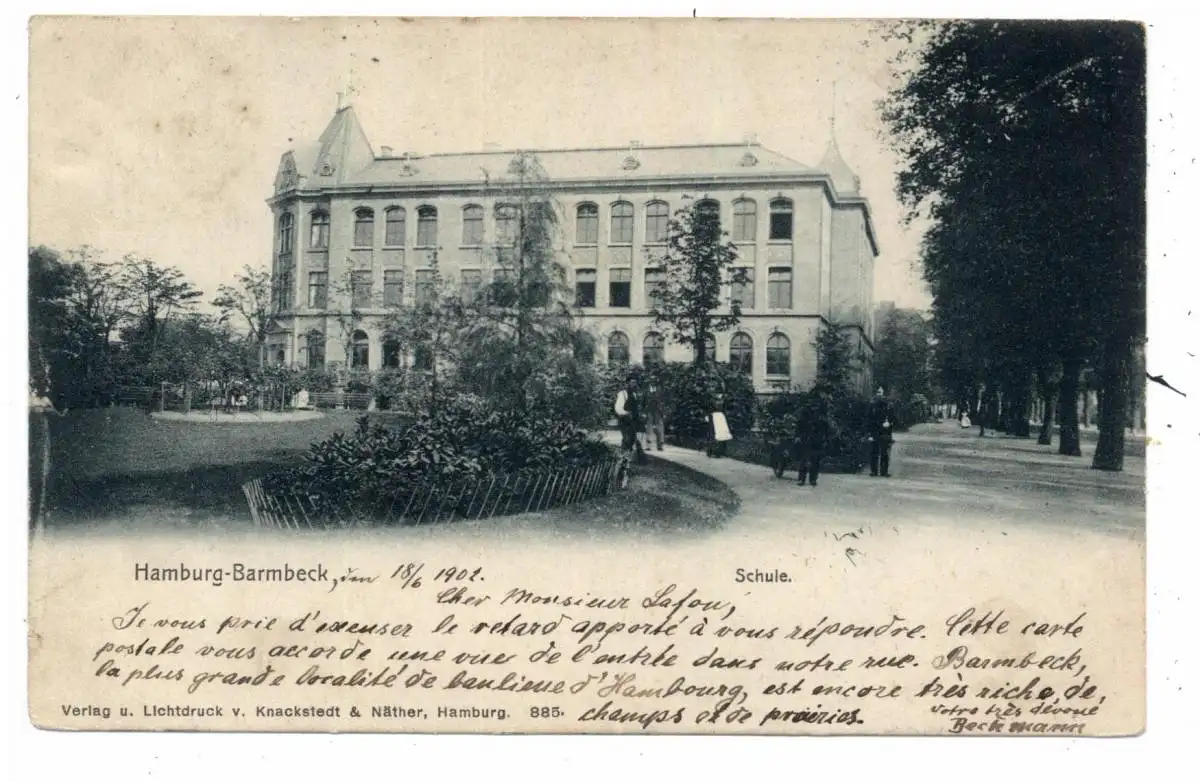 Hamburg-Barmbeck, den 18/6 1902.
Schule.
Cher Monsieur Lafon,
Je vous prie d'excuser le retard apporté à vous répondre. Cette carte
postale vous accorde une vue de l'entrée dans notre rue. Barmbeck,
la plus grande localité de banlieue d'Hambourg, est encore très riche de
champs et de prairies.
Votre très dévoué
Beckmann
Verlag u. Lichtdruck v. Knackstedt & Näther, Hamburg. 885.